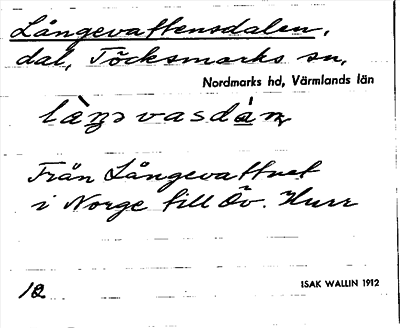 Långevattensdalen,
dal, Töcksmarks sn,
Nordmarks hd, Värmlands län
Från Långevattnet
i Norge till Öv. Hurr
ISAK WALLIN 1912
12.